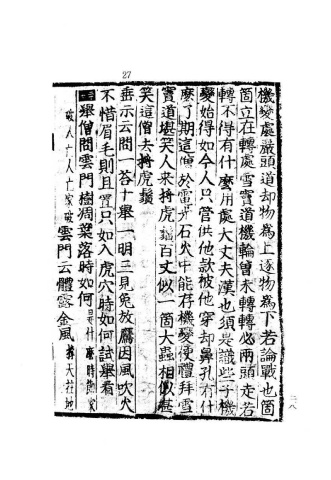 27
機變處巖頭道却物為上逐物為下若論戰也箇
箇立在轉處雪竇道機輪曾未轉轉必兩頭走若
轉不得有什麼用處大丈夫漢也須是識些子機
變始得如今人只管供他款被他穿却鼻孔有什
麼了期這僧於雷并石火中能存機變便禮拜雪
竇道堪笑人來捋虎鬚百丈似一箇大蟲相似甚
笑這僧去捋虎鬚
垂示云問一答十舉一明三見兔放鷹因風吹火
不惜眉毛則且置只如入虎穴時如何試舉看
舉僧問雲門樹凋葉落時如何是什麼時節家
破人亡人亡家破雲門云體露金風撐天拄地